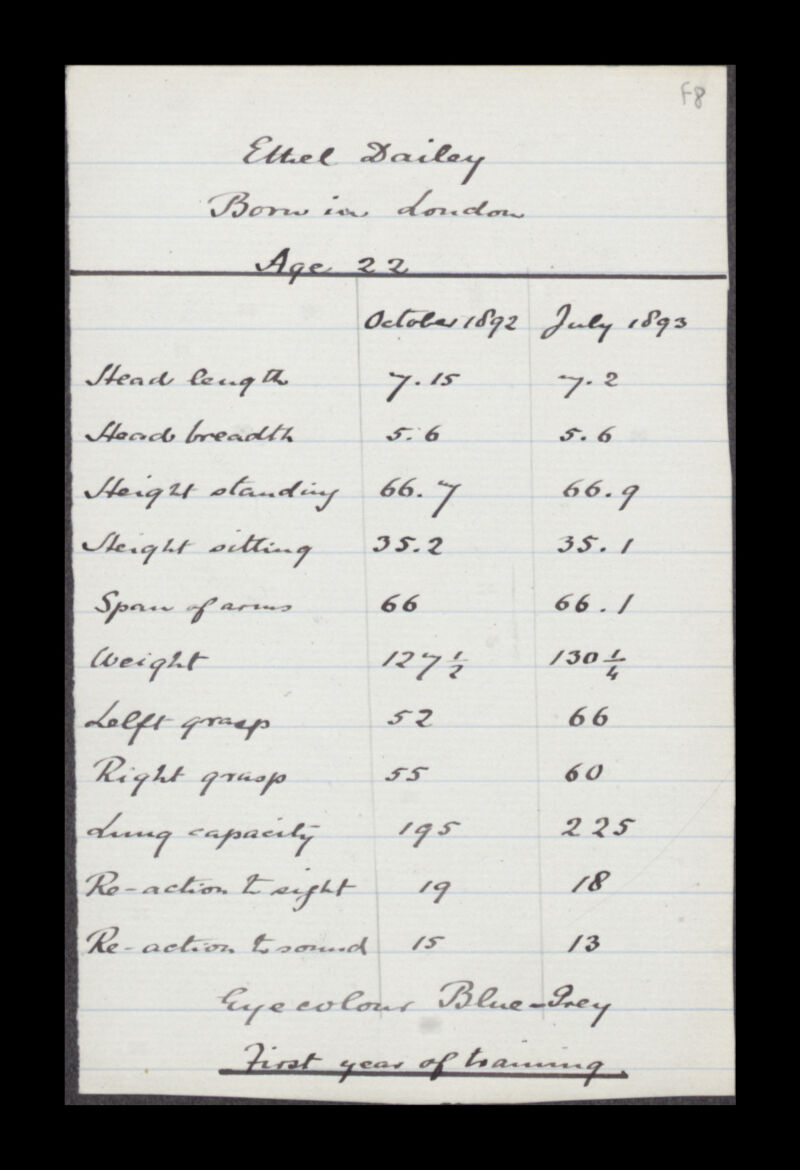 F8
Ethel Dailey
Born in London
Age 22
October 1892 July 1893
Head length 7.15 7.2
Head breadth 5.6 5.6
Height standing 66.7 66.9
Height sitting 35.2 35.1
Span of arms 66 66.1
Weight 127 1/2 130 1/4
Lelft grasp 52 66
Right grasp 55 60
Lung capacity 195 225
Re-action to sight 19 18
Re-action to sound 15 13
Eye colour Blue-Grey
First year of training.